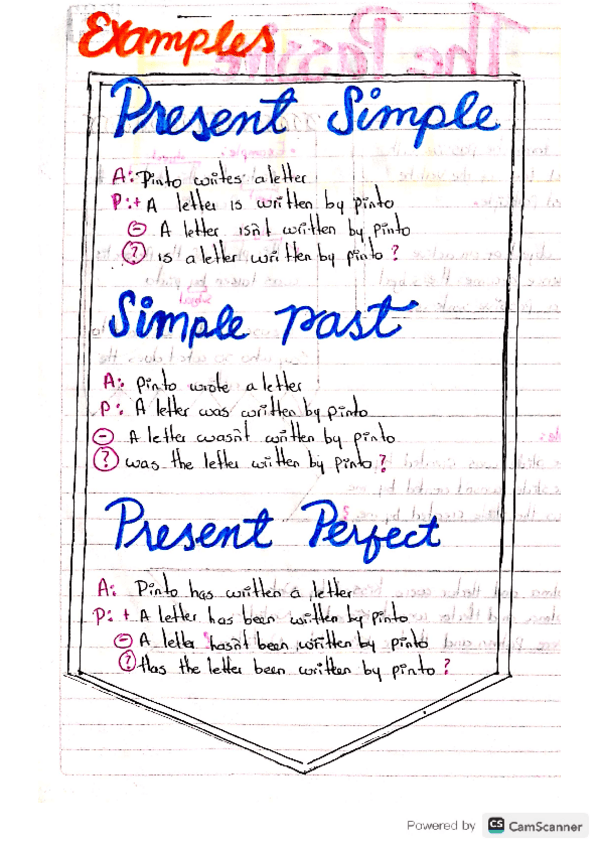 Examples
Present Simple
A: Pinto writes a letter
P:+ A letter is written by pinto
- A letter isn't written by pinto
? is a letter written by pinto ?
Simple past
A: pinto wrote a letter
P: A letter was written by pinto
- A letter wasn't written by pinto
? was the letter written by pinto ?
Present Perfect
A: Pinto has written a letter
P: + A letter has been written by pinto
- A letter hasn't been written by pinto
? Has the letter been written by pinto ?
Powered by CS CamScanner